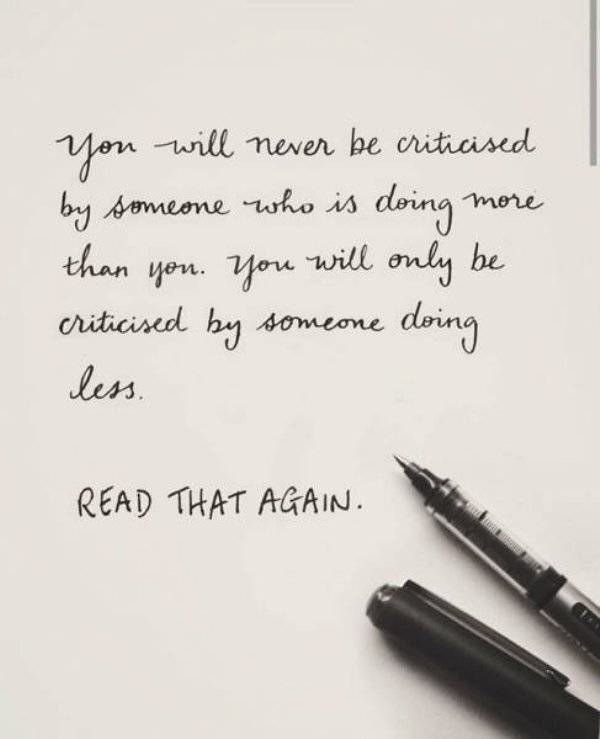 You will never be criticised
by someone who is doing more
than you. You will only be
criticised by someone doing
less.
READ THAT AGAIN.